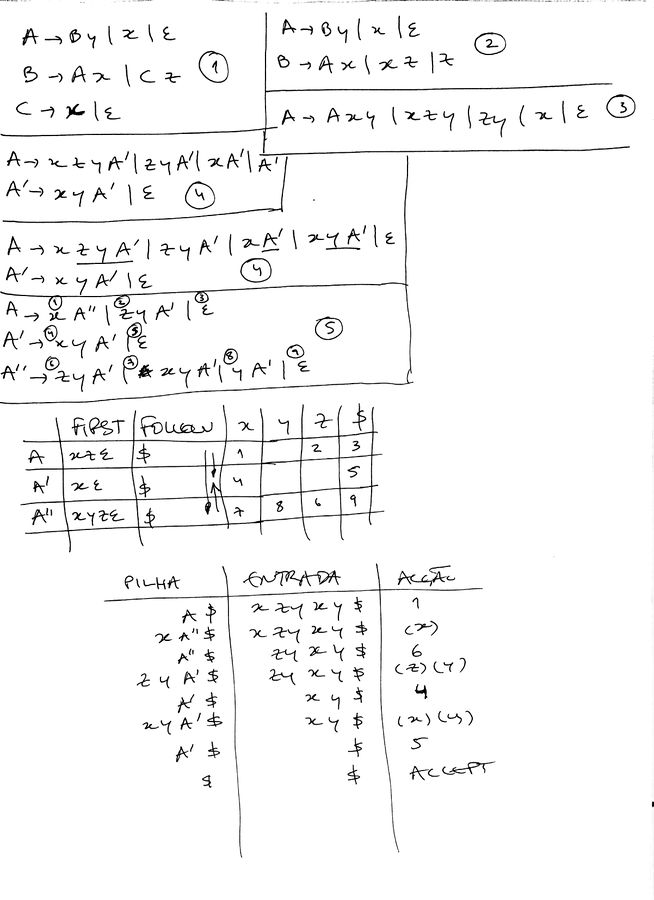 A → By | x | ε
B → Ax | Cz ①
C → x | ε
A → By | x | ε ②
B → Ax | xz | z
A → Axy | xzy | zy | x | ε ③
A → xzyA' | zyA' | xA' | A'
A' → xyA' | ε ④
A → xzyA' | zyA' | xA' | xyA' | ε
A' → xyA' | ε ④
A → ① xA'' | ② zyA' | ③ ε
A' → ④ xyA' | ⑤ ε ⑤
A'' → ⑥ zyA' | ⑦ xyA' | ⑧ yA' | ⑨ ε
FIRST FOLLOW x y z $
A xzε $ 1 2 3
A' xε $ 4 5
A'' xyzε $ 7 8 6 9
PILHA ENTRADA ACÇÃO
A $ xzyxy$ 1
xA''$ xzyxy$ (x)
A''$ zyxy$ 6
zyA'$ zyxy$ (z)(y)
A' $ xy$ 4
xyA'$ xy$ (x)(y)
A' $ $ 5
$ $ ACCEPT